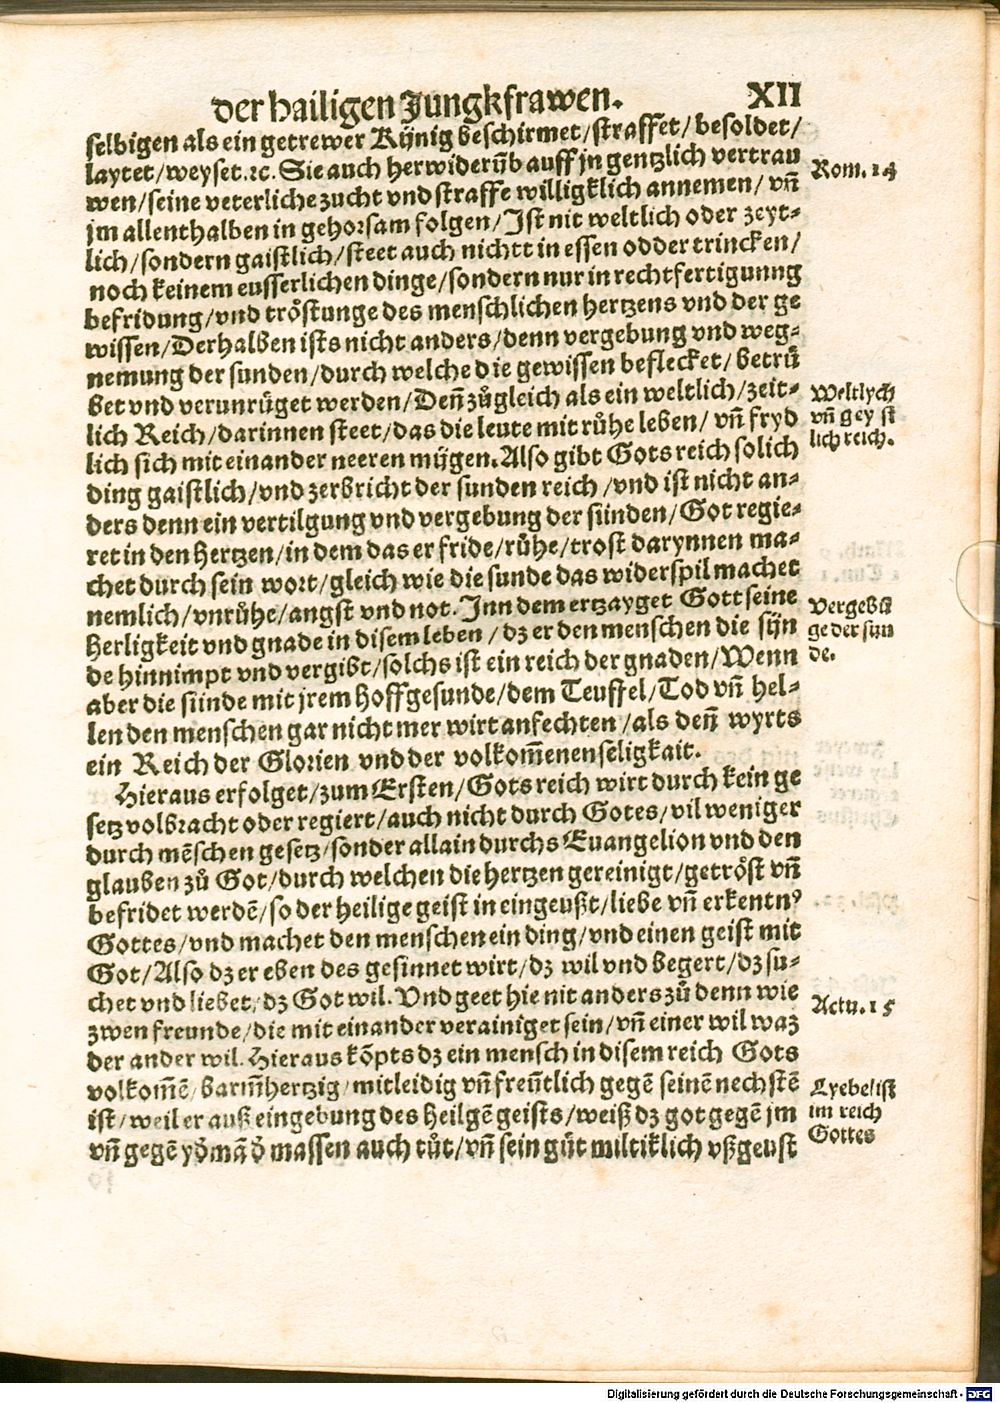 der hailigen Jungkfrawen. XII
selbigen als ein getrewer Kỹnig beschirmet/straffet/besoldet/
laytet/weyset.ꝛc. Sie auch herwiderũb auff jn gentzlich vertrau
Rom. 14
wen/seine veterliche zucht vnd straffe willigklich annemen/vñ
jm allenthalben in gehorsam folgen/Ist nit weltlich oder zeyt-
lich/sondern gaistlich/steet auch nichtt in essen odder trincken/
noch keinem eusserlichen dinge/sondern nur in rechtfertigunng
befridung/vnd tröstunge des menschlichen hertzens vnd der ge
wissen/Derhalben ists nicht anders/denn vergebung vnd weg-
nemung der sunden/durch welche die gewissen beflecket/betrů
bet vnd verunrüget werden/Deñ zůgleich als ein weltlich/zeit-
Weltlych
lich Reich/darinnen steet/das die leute mit růhe leben/vñ fryd
vñ gey st
lich sich mit einander neeren mỹgen. Also gibt Gots reich solich
lich reich.
ding gaistlich/vnd zerbricht der sunden reich/vnd ist nicht an-
ders denn ein vertilgung vnd vergebung der sünden/Got regie-
ret in den Hertzen/in dem das er fride/růhe/trost darynnen ma-
chet durch sein wort/gleich wie die sunde das widerspil machet
nemlich/vnrůhe/angst vnd not. Inn dem ertzayget Gott seine
Vergebũ
Herligkeit vnd gnade in disem leben/dz er den menschen die sỹn
ge der sun
de hinnimpt vnd vergibt/solchs ist ein reich der gnaden/Wenn
de.
aber die sünde mit jrem Hoffgesunde/dem Teuffel/Tod vñ hel-
len den menschen gar nicht mer wirt anfechten/als deñ wyrts
ein Reich der Glorien vnd der volkom̃enen seligkait.
Hieraus erfolget/zum Ersten/Gots reich wirt durch kein ge
setz volbracht oder regiert/auch nicht durch Gotes/vil weniger
durch mẽschen gesetz/sonder allain durchs Euangelion vnd den
glauben zů Got/durch welchen die hertzen gereinigt/getröst vñ
befridet werdẽ/so der heilige geist in eingeußt/liebe vñ erkentnꝰ
Gottes/vnd machet den menschen ein ding/vnd einen geist mit
Got/Also dz er eben des gesinnet wirt/dz wil vnd begert/dz su-
chet vnd liebet/dz Got wil. Vnd geet hie nit anders zů denn wie
Actu. 15
zwen freunde/die mit einander verainiget sein/vñ einer wil waz
der ander wil. Hieraus kõpts dz ein mensch in disem reich Gots
volkom̃ẽ/barm̃hertzig/mitleidig vñ freũtlich gegẽ seinẽ nechstẽ
Lyebe ist
ist/weil er auß eingebung des Heilgẽ geists/weiß dz got gegẽ jm
im reich
vñ gegẽ yd̕ mã d̕ massen auch tůt/vñ sein gůt miltiklich vßgeust
Gottes
Digitalisierung gefördert durch die Deutsche Forschungsgemeinschaft - DFG